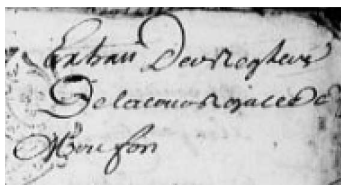 Extrait Des Registres
De la cour Royalle de
Mouson